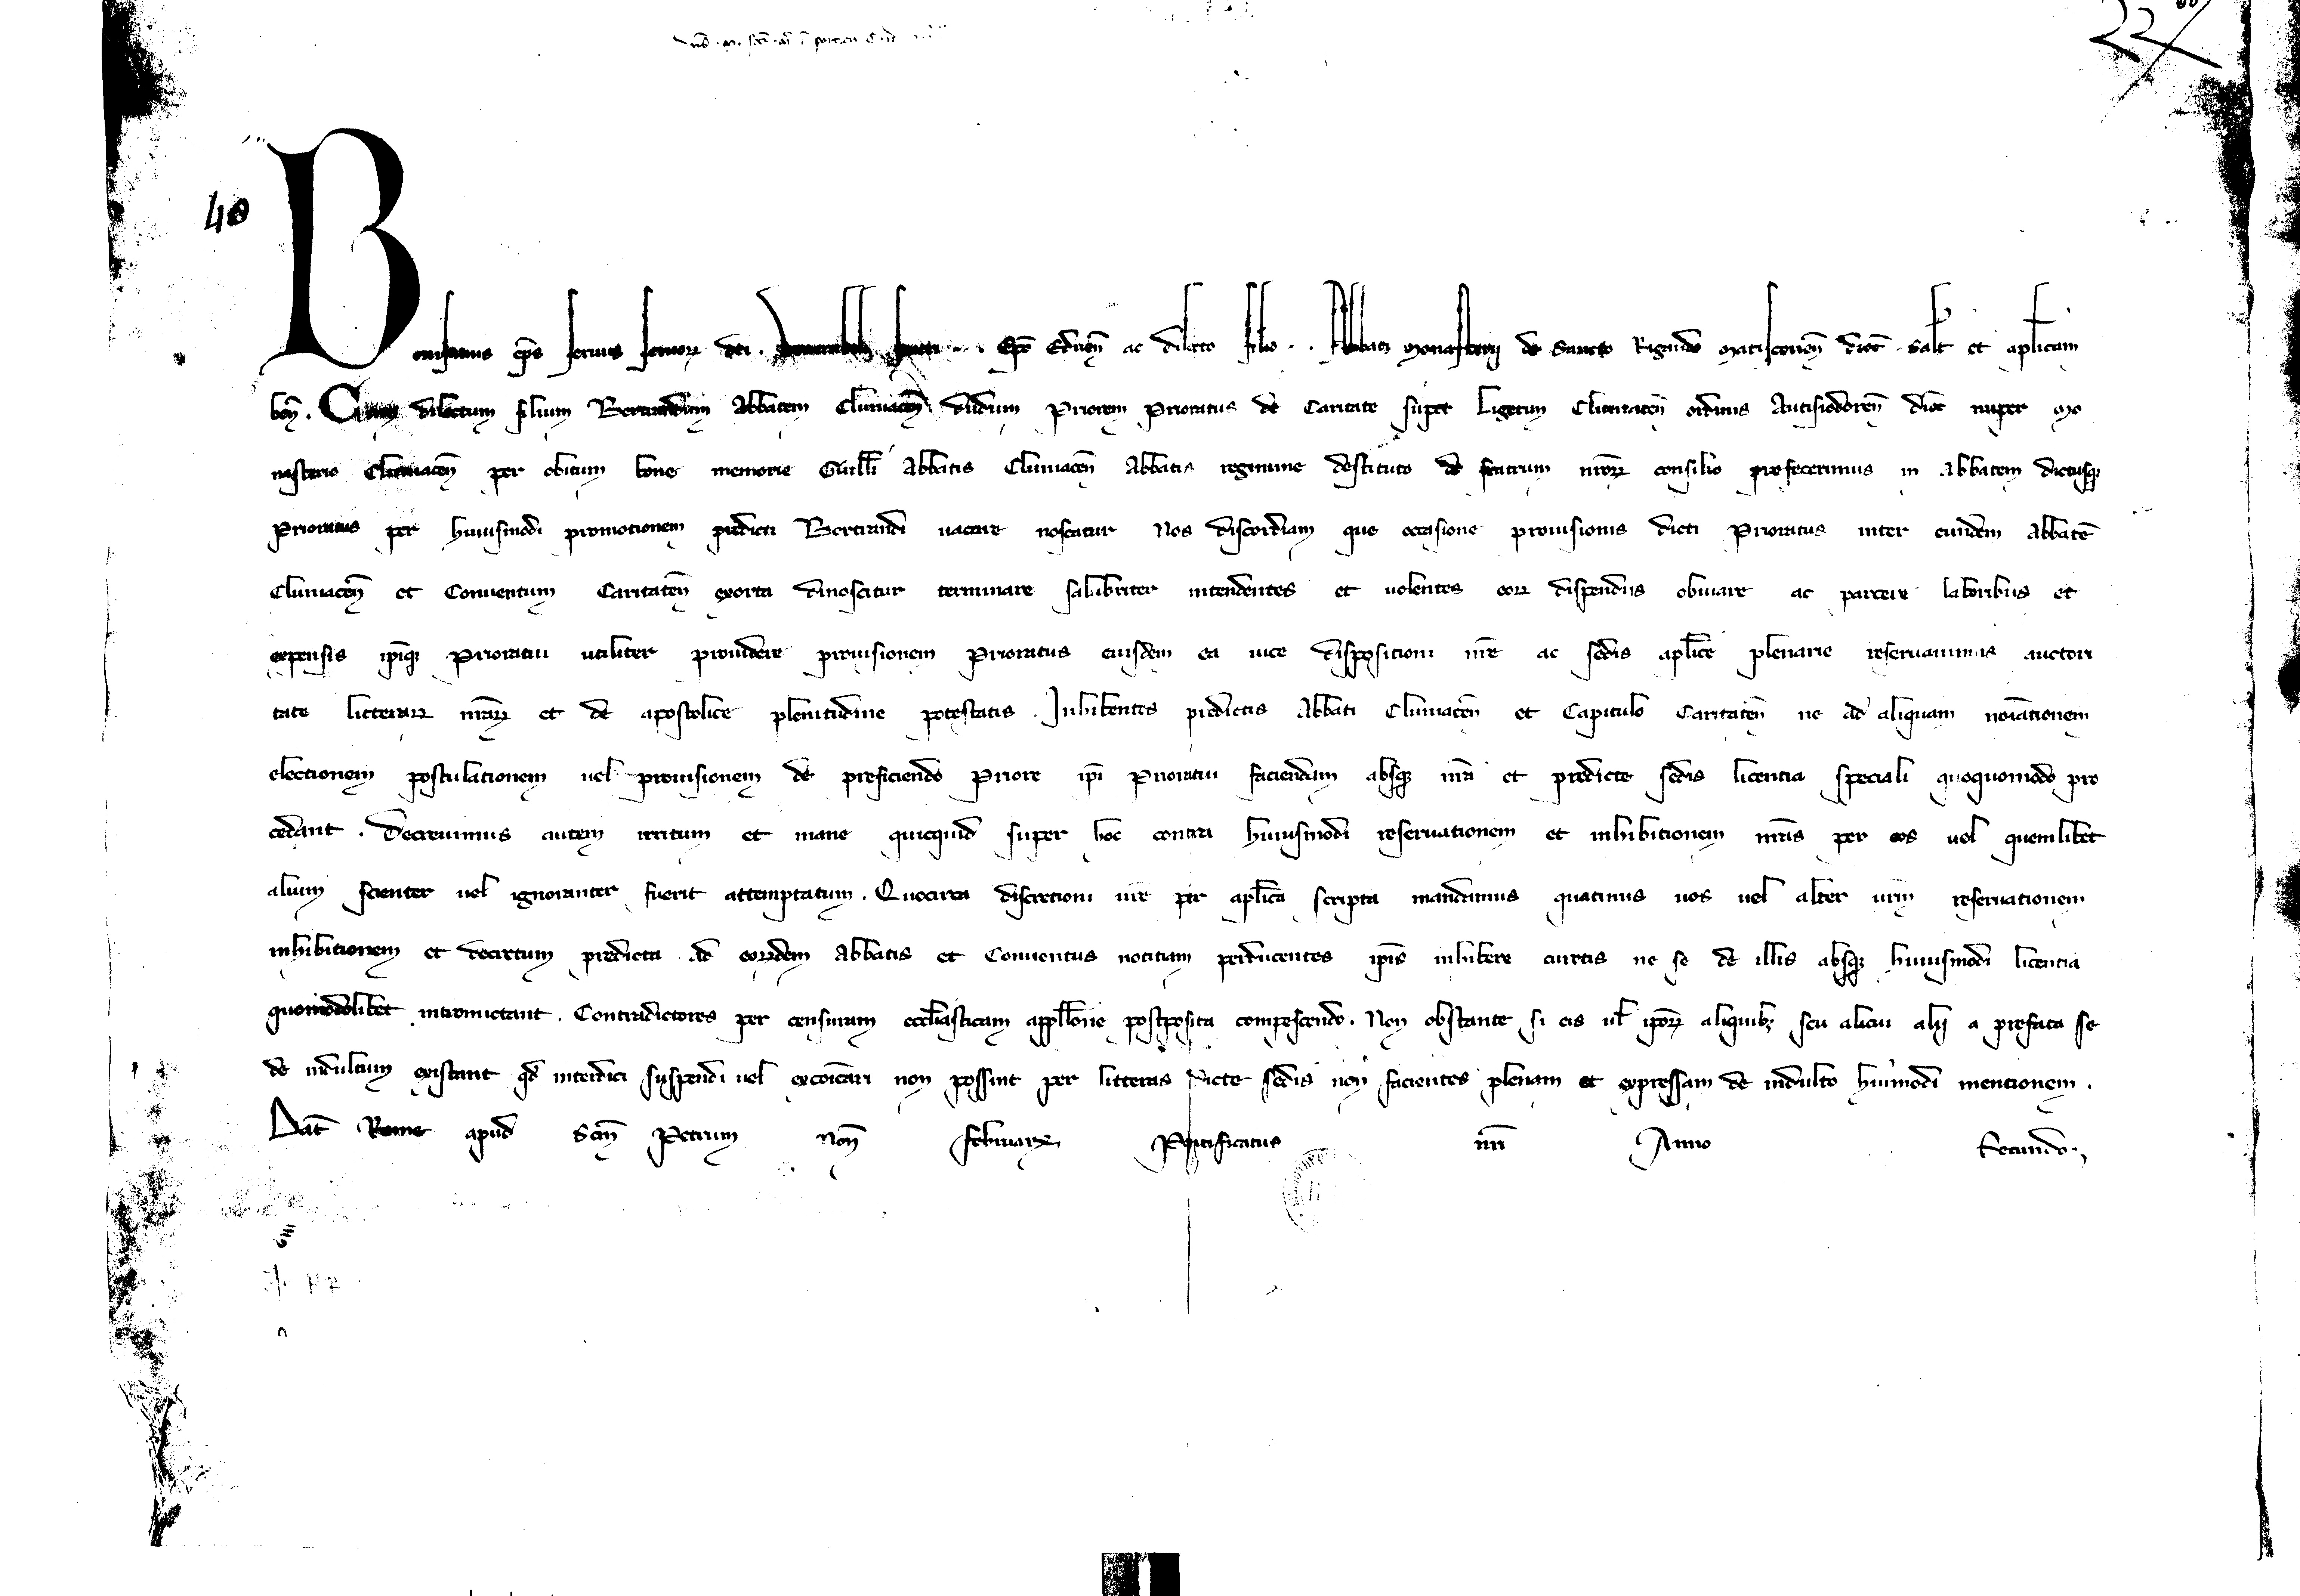 22
40
Bonifatius ep̄s servus servorꝝ dei. Venerabili fratri . . Ep̄o Eduen̄ ac dilecto filio . . Abbati Monasterij de Sancto Rigaudo Matisconen̄ dioc̄ Salt̄ et ap̄licam
ben̄. Cum dilectum filium Bertrandum Abbatem Cluniacen̄ dudum Priorem Prioratus de Caritate super Ligerim Cluniacen̄ ordinis Antisiodoren̄ dioc̄ nuper mo
nasterio Cluniacen̄ per obitum bone memorie Guill̄i Abbatis Cluniacen̄ Abbatis regimine destituto de fratrum nr̄orꝝ consilio prefecerimus in Abbatem dictusqꝫ
Prioratus per huiusmodi promotionem predicti Bertrandi vacare noscatur Nos discordiam que occasione provisionis dicti Prioratus inter eundem Abbatē
Cluniacen̄ et Conventum Caritaten̄ exorta dinoscitur terminare salubriter intendentes et volentes eorꝝ dispendiis obviare ac parcere laboribus et
expensis ip̄iqꝫ Prioratui utiliter providere provisionem Prioratus eiusdem ea vice dispositioni nr̄e ac sedis ap̄lice plenarie reservavimus auctori
tate litterarꝝ nr̄arꝝ et de apostolice plenitudine potestatis. Inhibentes predictis Abbati Cluniacen̄ et Capitulo Caritaten̄ ne ad aliquam noīationem
electionem postulationem vel provisionem de preficiendo Priore ip̄i Prioratui faciendam absqꝫ nr̄a et predicte sedis licentia speciali quoquomodo pro
cedant. Decrevimus autem irritum et inane quicquid super hoc contra huiusmodi reservationem et inhibitionem nr̄as per eos vel quemlibet
alium scienter vel ignoranter fuerit attemptatum. Quocirca discretioni vr̄e per ap̄lica scripta mandamus quatinus vos vel alter vr̄m reservationem
inhibitionem et decretum predicta ad eorꝝdem Abbatis et Conventus notitiam perducentes ip̄is inhibere curetis ne se de illis absqꝫ huiusmodi licentia
quomodolibet intromictant. Contradictores per censuram eccl̄iasticam appell̄one postposita compescendo. Non obstante si eis vel ip̄orꝝ aliquibꝫ seu alicui alij a prefata se
de indultum existant qd̄ interdici suspendi vel excoīcari non possint per litteras dicte sedis non facientes plenam et expressam de indulto huiꝰmodi mentionem.
Dat̄ Rome apud Scm̄ Petrum Non̄ februarꝝ Pontificatus nr̄i Anno Secundo.